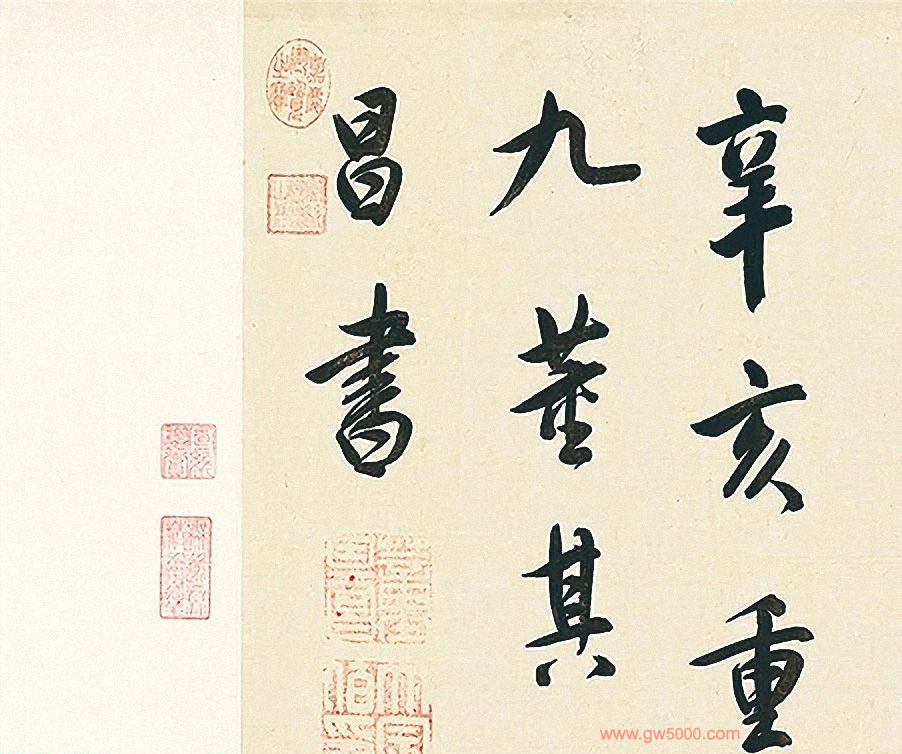 辛亥重
九董其
昌書
www.gw5000.com